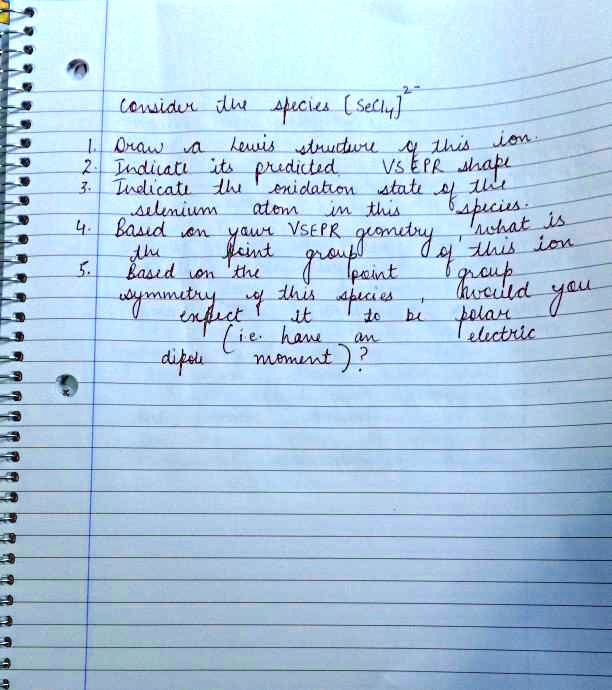 Consider the species [SeCl4]2-
1. Draw a Lewis structure of this ion.
2. Indicate its predicted VSEPR shape
3. Indicate the oxidation state of the
selenium atom in this species.
4. Based on your VSEPR geometry, what is
the point group of this ion
5. Based on the point group
symmetry of this species, would you
expect it to be polar
(i.e. have an electric
dipole moment)?